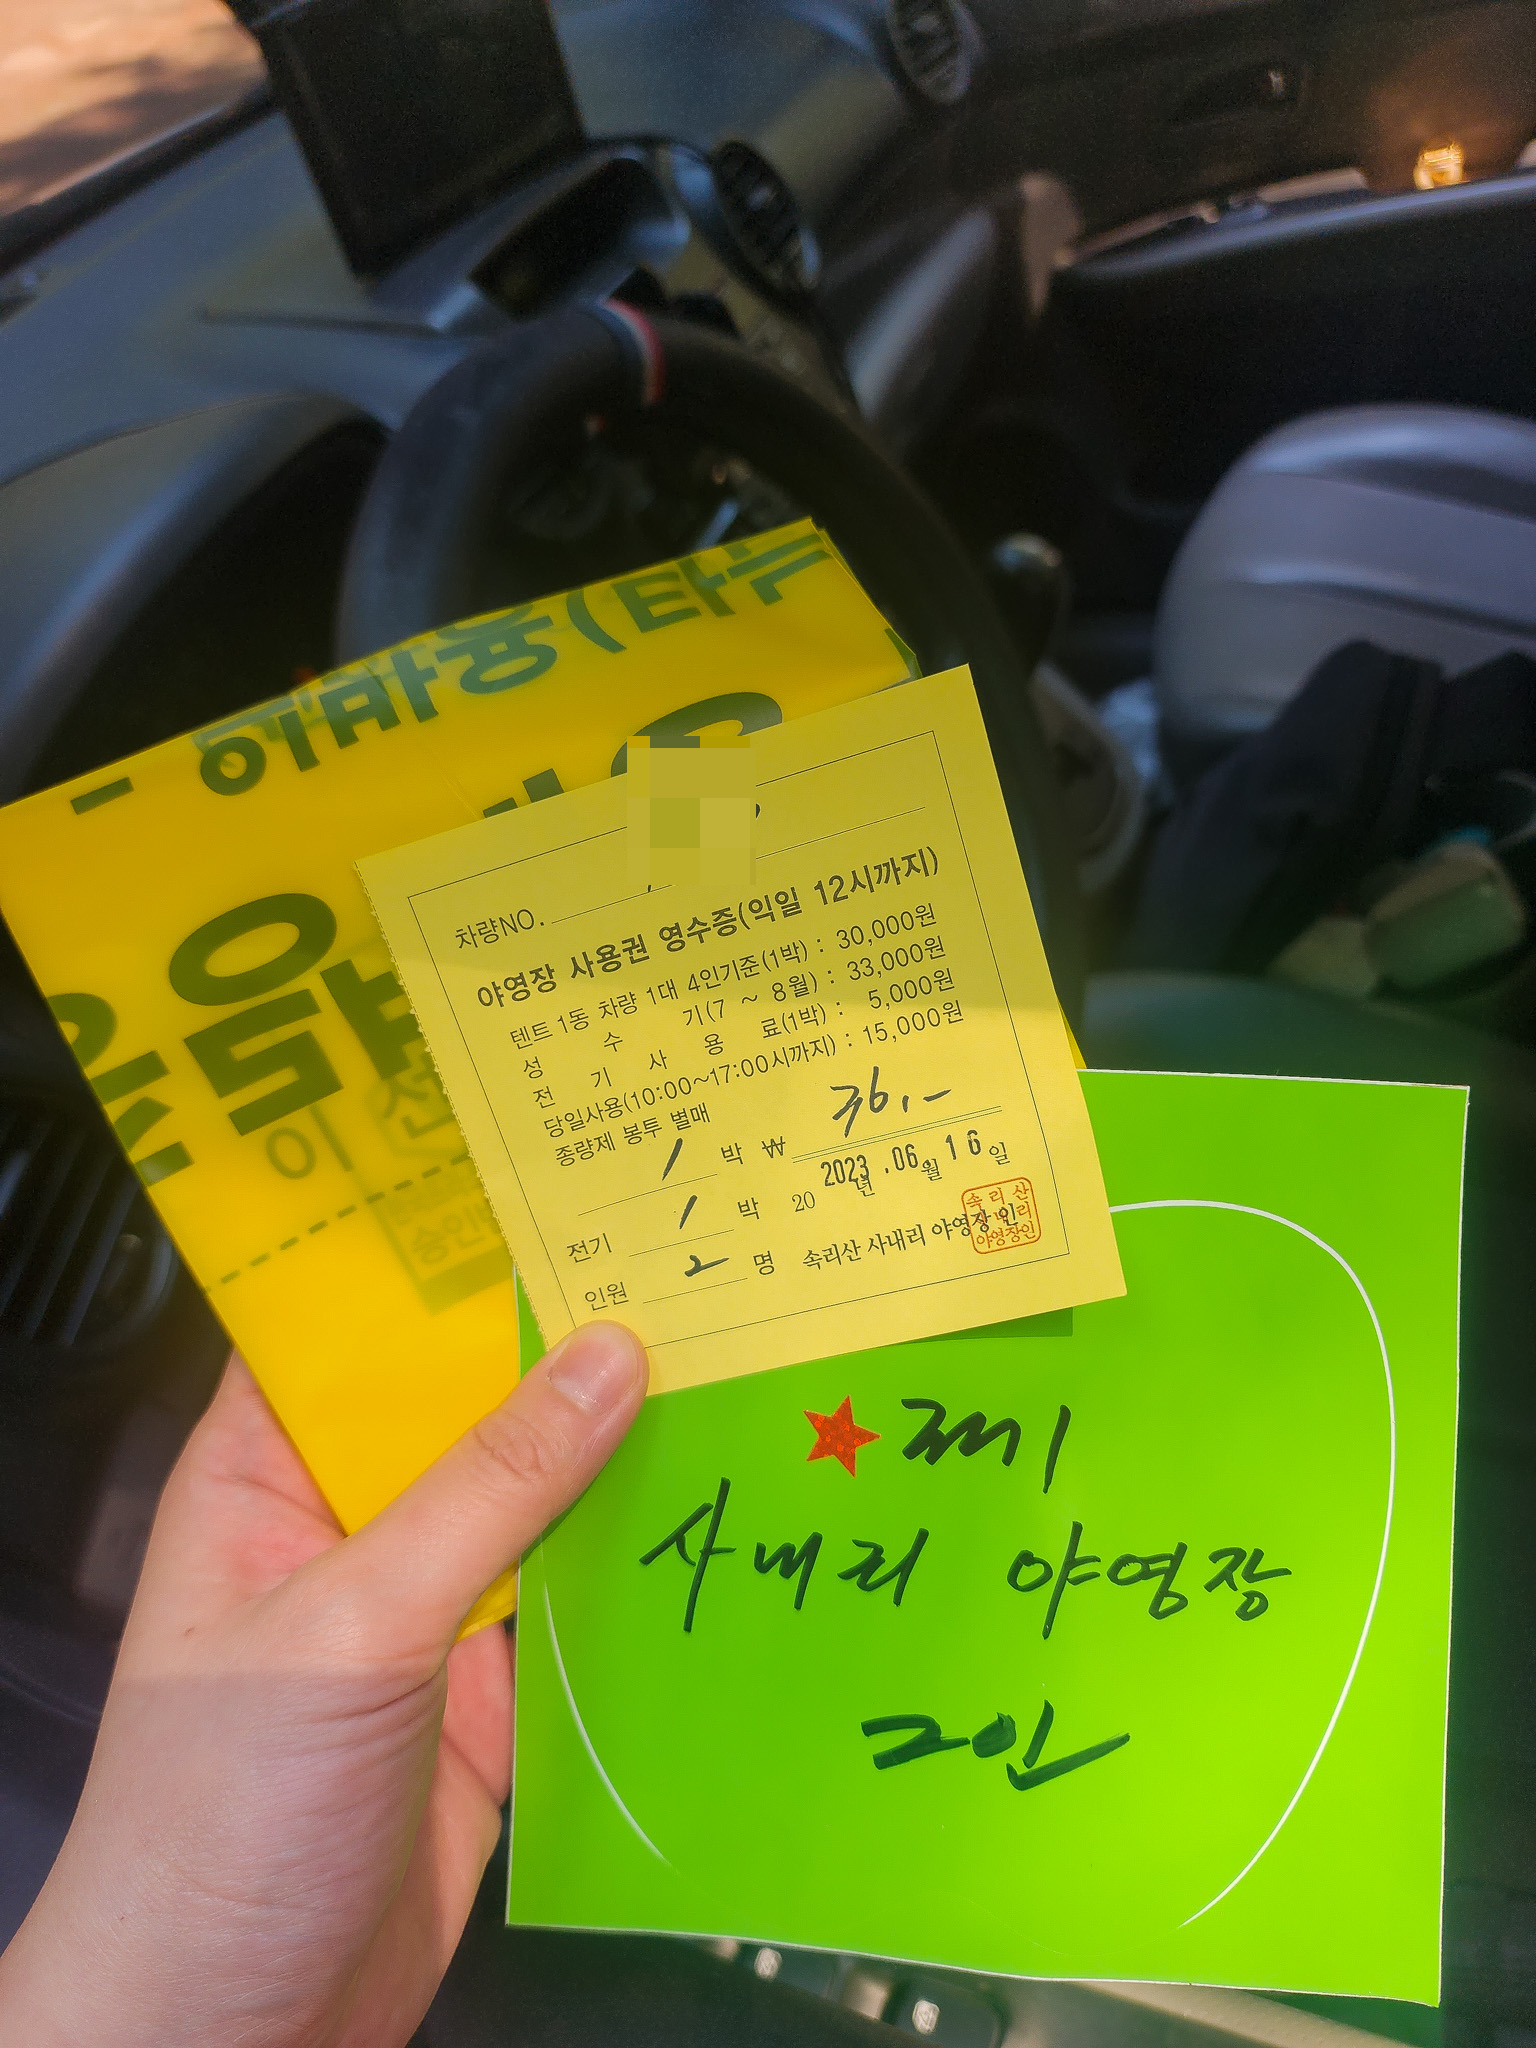 차량NO.
야영장 사용권 영수증(익일 12시까지)
텐트 1동 차량 1대 4인기준(1박) : 30,000원
성 수 기(7 ~ 8월) : 33,000원
전 기 사 용 료(1박) : 5,000원
당일사용(10:00~17:00시까지) : 15,000원
종량제 봉투 별매
1 박 ₩ 36,-
전기 1 박 20 2023년 .06월 16일
인원 2 명 속리산 사내리 야영장 인
속리산
사내리
야영장인
사내리 야영장
2인
음
이